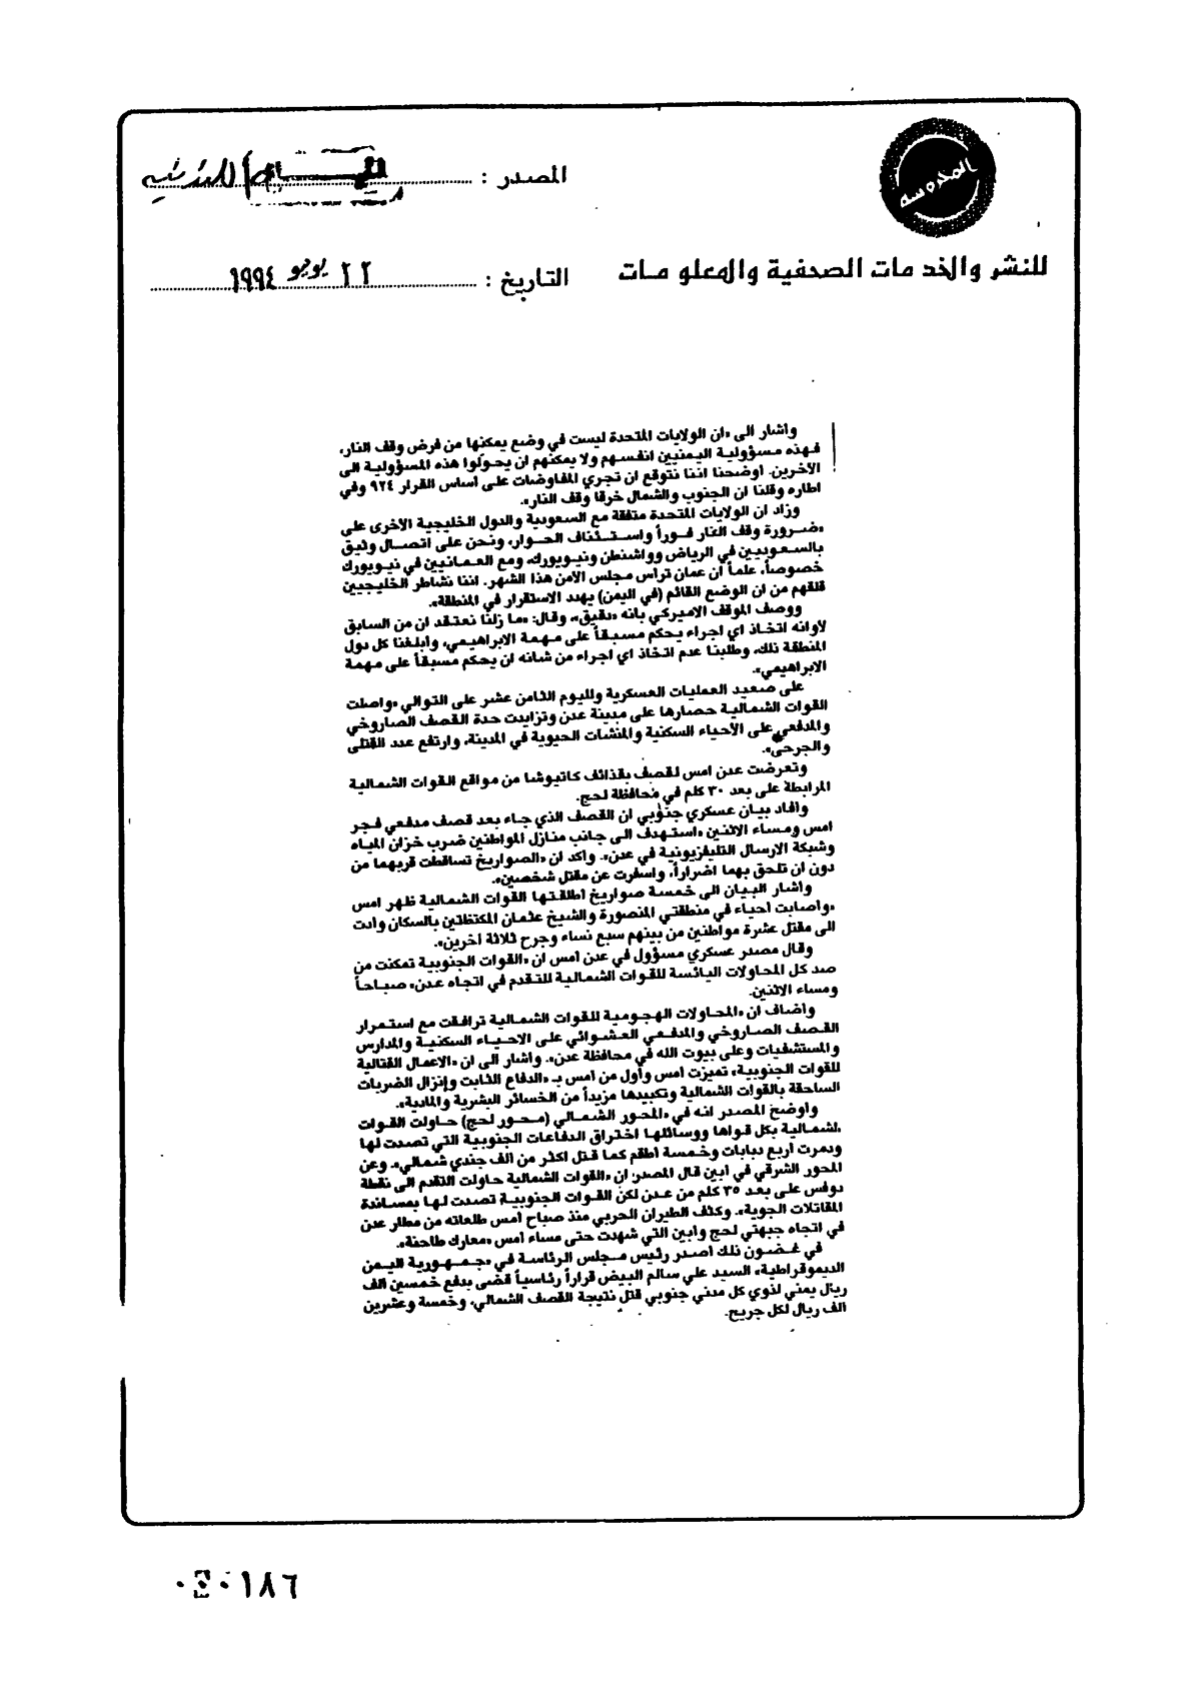 المحروسة
المصدر :
للنشر والخدمات الصحفية والمعلومات
التاريخ : ٢٢ يونيو ١٩٩٤
واشار الى «ان الولايات المتحدة ليست في وضع يمكنها من فرض وقف النار،
فهذه مسؤولية اليمنيين انفسهم ولا يمكنهم ان يحولوا هذه المسؤولية الى
الآخرين. اوضحنا اننا نتوقع ان تجري المفاوضات على اساس القرار ٩٢٤ وفي
اطاره وقلنا ان الجنوب والشمال خرقا وقف النار».
وزاد ان الولايات المتحدة متفقة مع السعودية والدول الخليجية الأخرى على
«ضرورة وقف النار فوراً واستئناف الحوار، ونحن على اتصال وثيق
بالسعوديين في الرياض وواشنطن ونيويورك، ومع العمانيين في نيويورك
خصوصاً، علماً ان عمان ترأس مجلس الأمن هذا الشهر. اننا نشاطر الخليجيين
قلقهم من ان الوضع القائم (في اليمن) يهدد الاستقرار في المنطقة».
ووصف الموقف الاميركي بانه «دقيق»، وقال: «ما زلنا نعتقد ان من السابق
لأوانه اتخاذ اي اجراء يحكم مسبقاً على مهمة الابراهيمي، وابلغنا كل دول
المنطقة ذلك، وطلبنا عدم اتخاذ اي اجراء من شانه ان يحكم مسبقاً على مهمة
الابراهيمي».
على صعيد العمليات العسكرية ولليوم الثامن عشر على التوالي «واصلت
القوات الشمالية حصارها على مدينة عدن وتزايدت حدة القصف الصاروخي
والمدفعي على الأحياء السكنية والمنشآت الحيوية في المدينة، وارتفع عدد القتلى
والجرحى».
وتعرضت عدن امس لقصف بقذائف كاتيوشا من مواقع القوات الشمالية
المرابطة على بعد ٣٠ كلم في محافظة لحج.
وافاد بيان عسكري جنوبي ان القصف الذي جاء بعد قصف مدفعي فجر
امس ومساء الاثنين «استهدف الى جانب منازل المواطنين ضرب خزان المياه
وشبكة الارسال التليفزيونية في عدن». واكد ان «الصواريخ تساقطت قربهما من
دون ان تلحق بهما اضراراً، واسفرت عن مقتل شخصين».
واشار البيان الى خمسة صواريخ اطلقتها القوات الشمالية ظهر امس
«واصابت احياء في منطقتي المنصورة والشيخ عثمان المكتظتين بالسكان وادت
الى مقتل عشرة مواطنين من بينهم سبع نساء وجرح ثلاثة آخرين».
وقال مصدر عسكري مسؤول في عدن امس ان «القوات الجنوبية تمكنت من
صد كل المحاولات اليائسة للقوات الشمالية للتقدم في اتجاه عدن» صباحاً
ومساء الاثنين.
واضاف ان «المحاولات الهجومية للقوات الشمالية ترافقت مع استمرار
القصف الصاروخي والمدفعي العشوائي على الاحياء السكنية والمدارس
والمستشفيات وعلى بيوت الله في محافظة عدن». واشار الى ان «الاعمال القتالية
للقوات الجنوبية» تميزت امس وأول من امس بـ «الدفاع الثابت وإنزال الضربات
الساحقة بالقوات الشمالية وتكبيدها مزيداً من الخسائر البشرية والمادية».
واوضح المصدر انه في «المحور الشمالي (محور لحج) حاولت القوات
لشمالية بكل قواها ووسائلها اختراق الدفاعات الجنوبية التي تصدت لها
ودمرت اربع دبابات وخمسة اطقم كما قتل اكثر من الف جندي شمالي». وعن
المحور الشرقي في ابين قال المصدر: ان «القوات الشمالية حاولت التقدم الى نقطة
دوفس على بعد ٣٥ كلم من عدن لكن القوات الجنوبية تصدت لها بمساندة
المقاتلات الجوية». وكثف الطيران الحربي منذ صباح امس طلعاته من مطار عدن
في اتجاه جبهتي لحج وابين التي شهدت حتى مساء امس «معارك طاحنة».
في غضون ذلك اصدر رئيس مجلس الرئاسة في «جمهورية اليمن
الديموقراطية» السيد علي سالم البيض قراراً رئاسياً قضى بدفع خمسين الف
ريال يمني لذوي كل مدني جنوبي قتل نتيجة القصف الشمالي، وخمسة وعشرين
الف ريال لكل جريح.